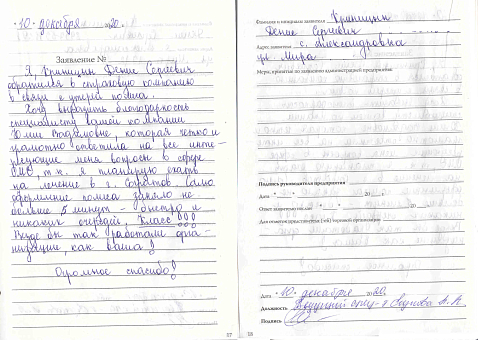 "10" декабря 2020 г.
Заявление №
Я, Криницин Денис Сергеевич
обратился в страховую компанию
в связи с утерей полиса.
Хочу выразить благодарность
специалисту вашей компании
Юлии Вадимовне, которая четко и
грамотно ответила на все инте-
ресующие меня вопросы в сфере
ОМС, т.к. я планирую ехать
на лечение в г. Саратов. Само
оформление полиса заняло не
больше 5 минут - быстро и
никаких очередей. Класс!!!
Везде бы так работали орга-
низации, как ваша!
Огромное спасибо!
17
Фамилия и инициалы заявителя Криницин
Денис Сергеевич
Адрес заявителя с. Александровка
ул. Мира
Меры, принятые по заявлению администрацией предприятия:
Подпись руководителя предприятия
Дата " " 20 г.
Ответ заявителю послан " " 20 г.
Дата "10" декабря 2020 г.
Должность Ведущий
Подпись
18